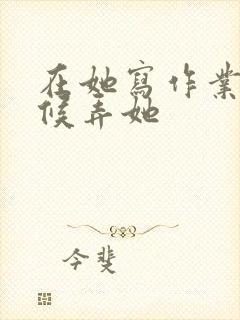 在她寫作業
候弄她
今斐